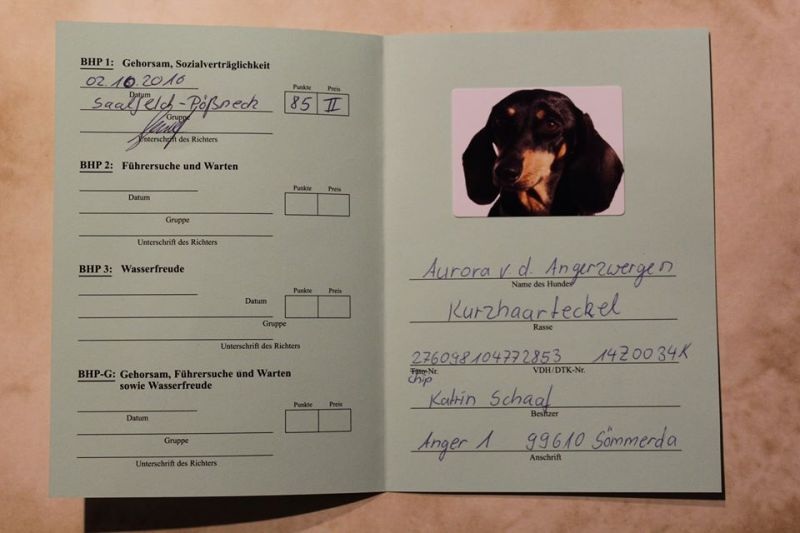 BHP 1: Gehorsam, Sozialverträglichkeit
02.10.2016
Datum
Punkte Preis
Saalfeld-Pößneck 85 II
Gruppe
Unterschrift des Richters
BHP 2: Führersuche und Warten
Punkte Preis
Datum
Gruppe
Unterschrift des Richters
BHP 3: Wasserfreude
Punkte Preis
Datum
Gruppe
Unterschrift des Richters
BHP-G: Gehorsam, Führersuche und Warten
sowie Wasserfreude
Punkte Preis
Datum
Gruppe
Unterschrift des Richters
Aurora v. d. Angerzwergen
Name des Hundes
Kurzhaarteckel
Rasse
276098104772853 14Z0034K
Täto-Nr. VDH/DTK-Nr.
Chip
Katrin Schaaf
Besitzer
Anger 1 99610 Sömmerda
Anschrift